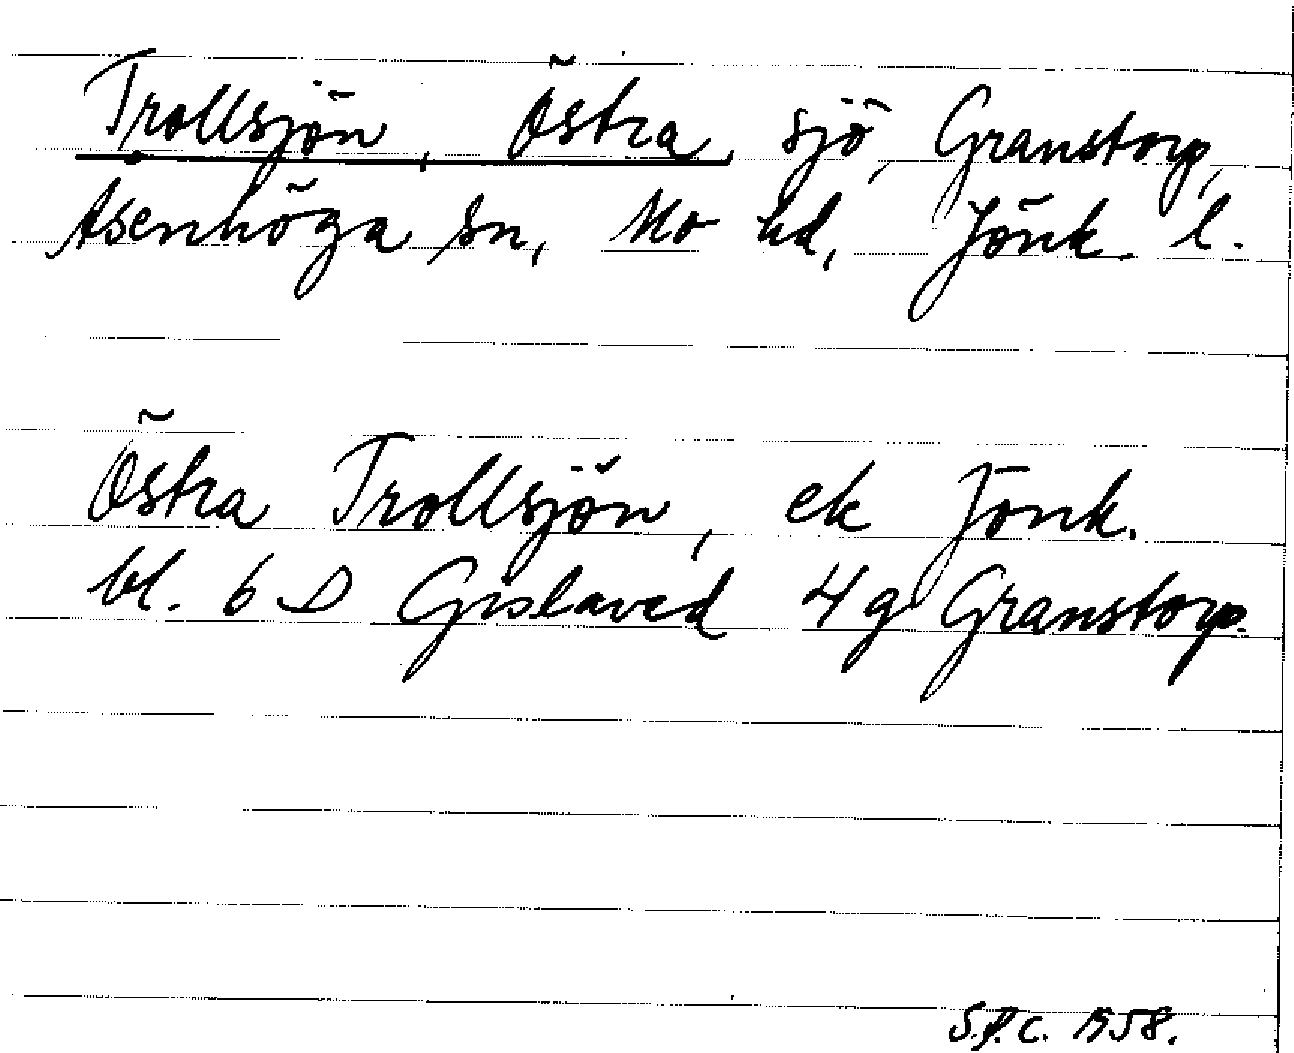 Trollsjön, Östra, sjö, Granstorp,
Åsenhöga sn, Mo hd, Jönk. l.
Östra Trollsjön, ek Jönk.
bl. 6 D Gislaved 4 g Granstorp.
1958.